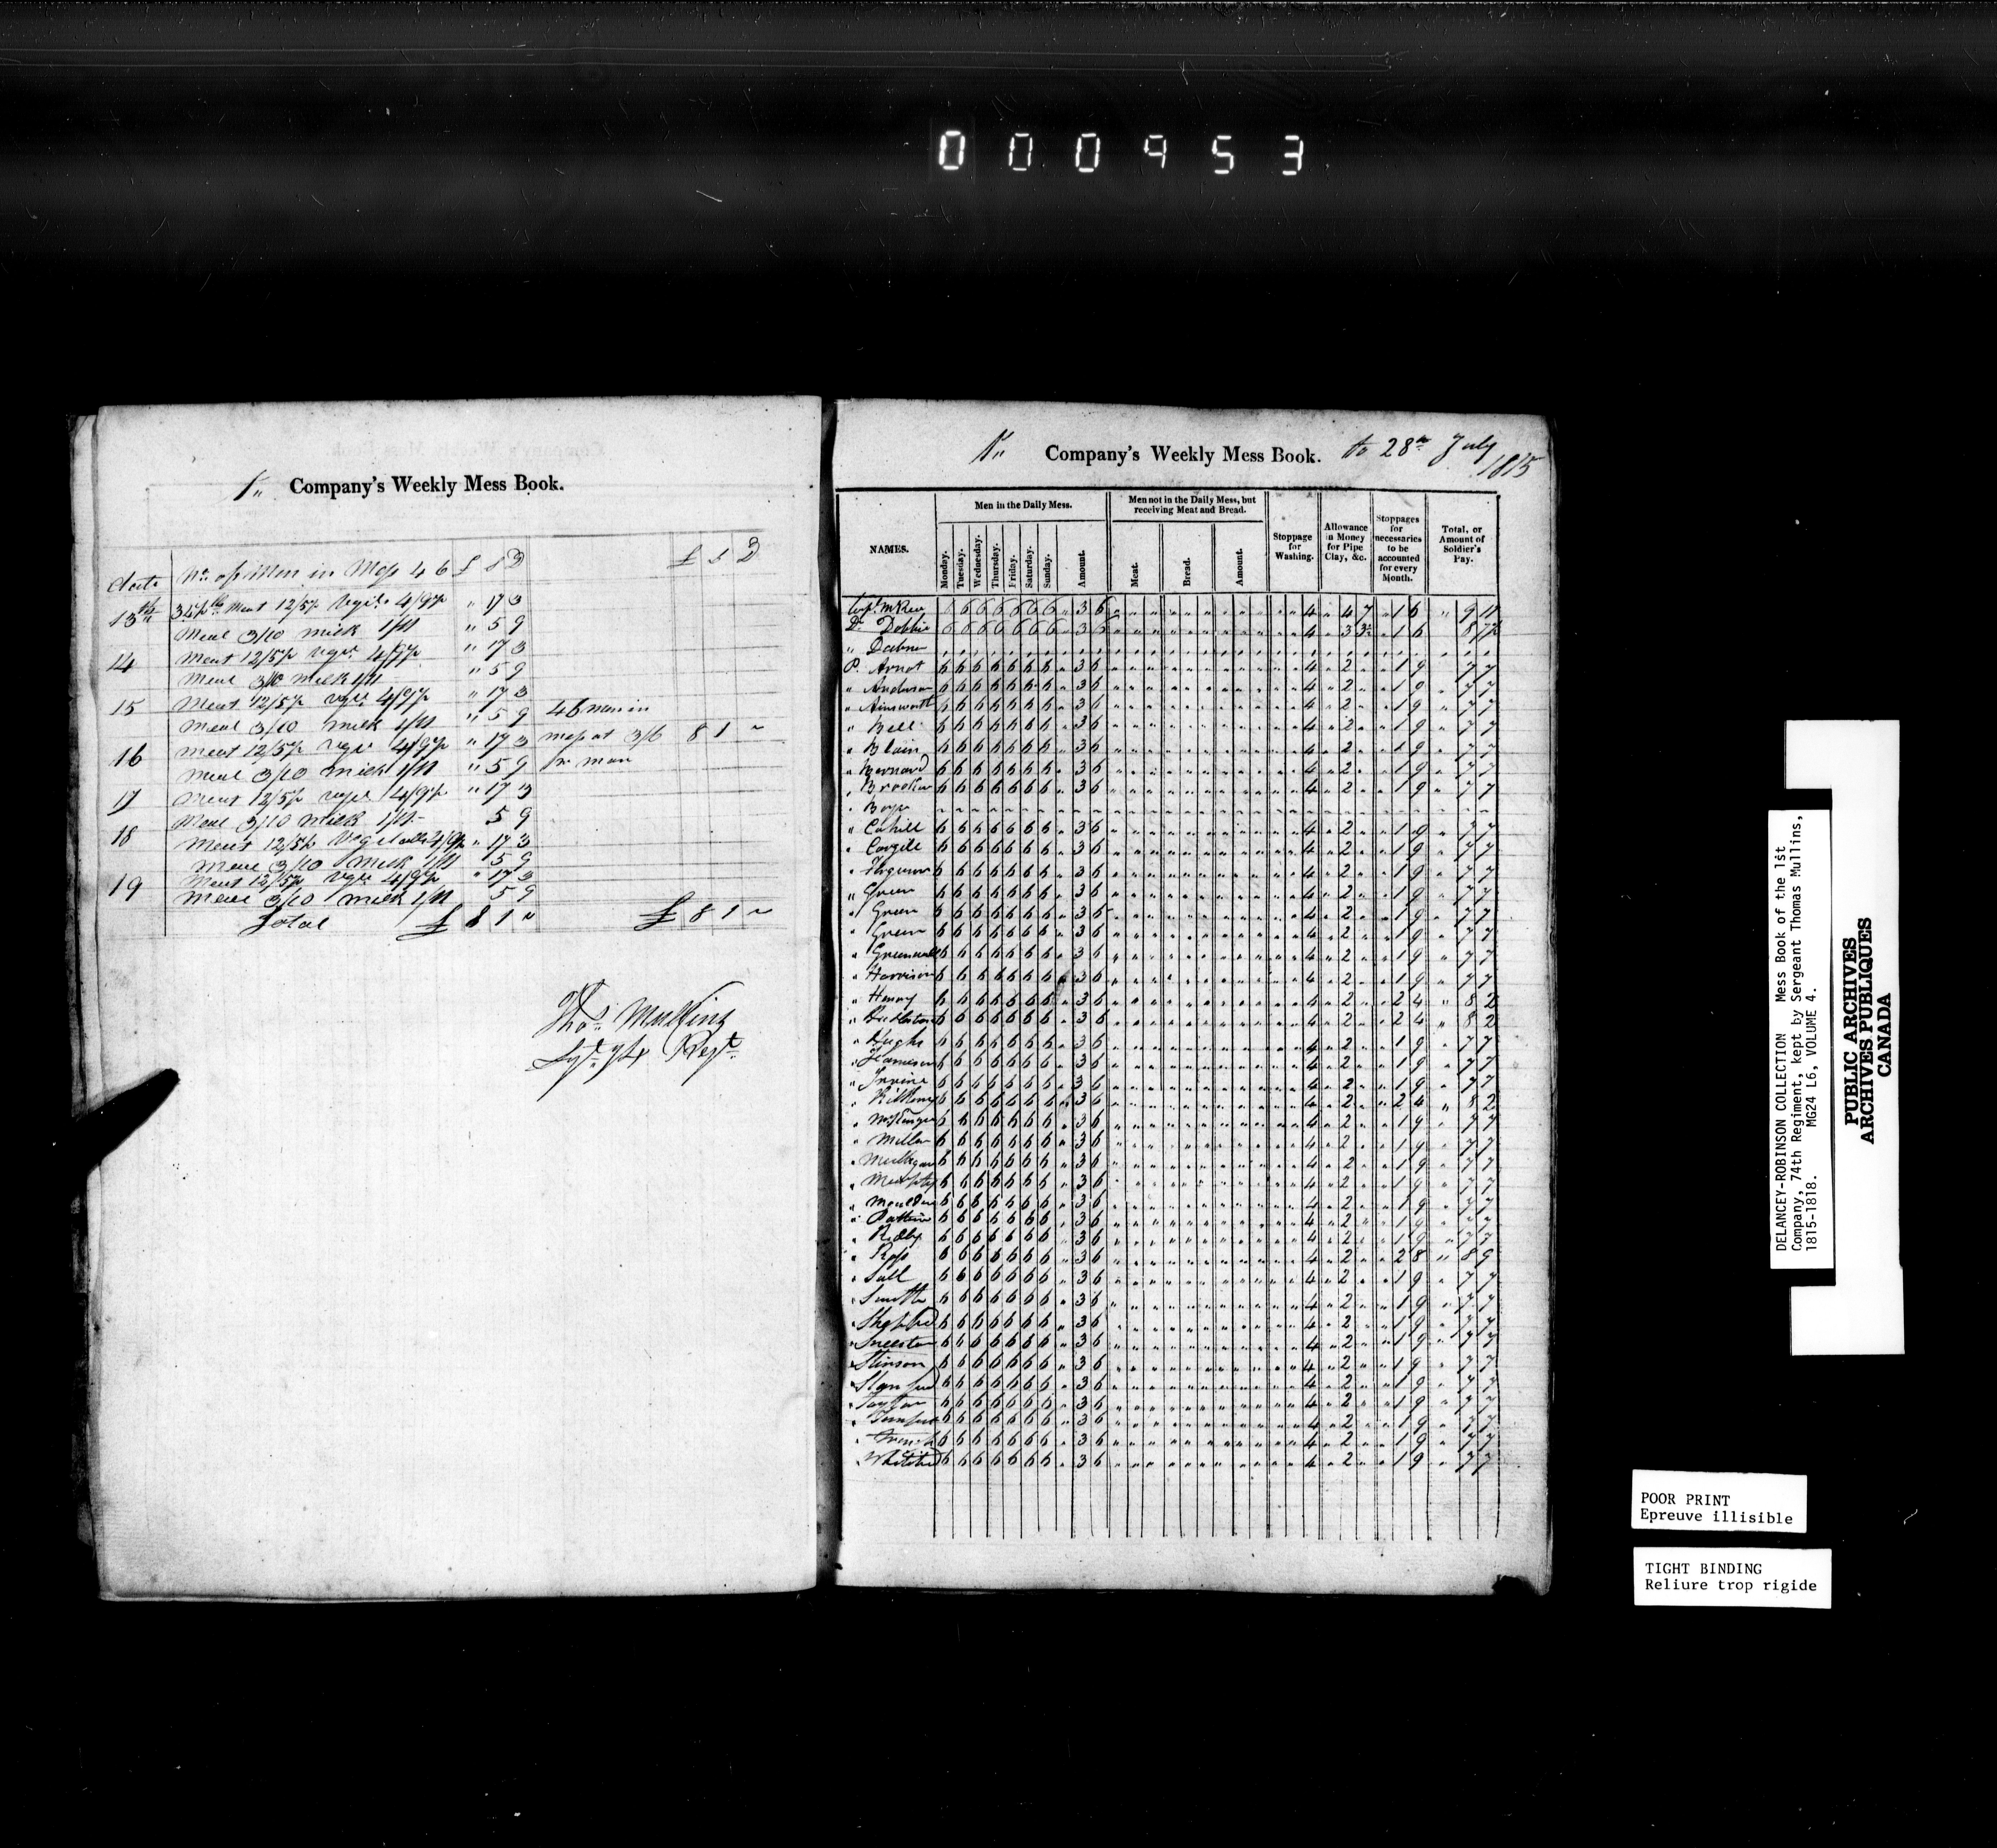 000953
1st Company's Weekly Mess Book.
date No. of Men in Mess 46 £ S D £ S D
13th Meat 12/5½ Vegs. 4/9½ " 17 3
Meal 3/10 Milk 1/11 " 5 9
14 Meat 12/5½ Vegs. 4/9½ " 17 3
Meal 3/10 Milk 1/11 " 5 9
15 Meat 12/5½ Vegs. 4/9½ " 17 3
Meal 3/10 Milk 1/11 " 5 9 46 men in
16 Meat 12/5½ Vegs. 4/9½ " 17 3 mess at 3/6 8 1 "
Meal 3/10 Milk 1/11 " 5 9 pr man
17 Meat 12/5½ Vegs. 4/9½ " 17 3
Meal 3/10 Milk 1/11 5 9
18 Meat 12/5½ Vegetables 4/9½ " 17 3
Meal 3/10 Milk 1/11 5 9
19 Meat 12/5½ Vegs. 4/9½ " 17 3
Meal 3/10 Milk 1/11 5 9
Total £ 8 1 " £ 8 1 "
Thos. Mullins
Sgt. 74 Regt.
1st Company's Weekly Mess Book. to 28th July
1815
NAMES.
Men in the Daily Mess.
Monday. Tuesday. Wednesday. Thursday. Friday. Saturday. Sunday. Amount.
Men not in the Daily Mess, but receiving Meat and Bread.
Meat. Bread. Amount.
Stoppage for Washing.
Allowance in Money for Pipe Clay, &c.
Stoppages for necessaries to be accounted for every Month.
Total, or Amount of Soldier's Pay.
Corpl. McKee 6 6 6 6 6 6 6 " 3 6 4 " 4 7 " 1 6 " 9 11
Do. Dobbie 6 6 6 6 6 6 6 " 3 6 4 " 3 3½ " 1 6 8 7½
" Dabner
P. Arnot 6 6 6 6 6 6 6 " 3 6 4 " 2 " " 1 9 " 7 7
" Anderson 6 6 6 6 6 6 6 " 3 6 4 " 2 " " 1 9 " 7 7
" Ainsworth 6 6 6 6 6 6 6 " 3 6 4 " 2 " " 1 9 " 7 7
" Bell 6 6 6 6 6 6 6 " 3 6 4 " 2 " " 1 9 " 7 7
" Blain 6 6 6 6 6 6 6 " 3 6 4 " 2 " " 1 9 " 7 7
" Bernard 6 6 6 6 6 6 6 " 3 6 4 " 2 " " 1 9 " 7 7
" 6 6 6 6 6 6 6 " 3 6 4 " 2 " " 1 9 " 7 7
" Boyle
" Cahill 6 6 6 6 6 6 6 " 3 6 4 " 2 " " 1 9 " 7 7
" Cargill 6 6 6 6 6 6 6 " 3 6 4 " 2 " " 1 9 " 7 7
" Ferguson 6 6 6 6 6 6 6 " 3 6 4 " 2 " " 1 9 " 7 7
" Green 6 6 6 6 6 6 6 " 3 6 4 " 2 " " 1 9 " 7 7
" Green 6 6 6 6 6 6 6 " 3 6 4 " 2 " " 1 9 " 7 7
" Green 6 6 6 6 6 6 6 " 3 6 4 " 2 " " 1 9 " 7 7
" Greenwell 6 6 6 6 6 6 6 " 3 6 4 " 2 " " 1 9 " 7 7
" Harrison 6 6 6 6 6 6 6 " 3 6 4 " 2 " " 1 9 " 7 7
" Henry 6 6 6 6 6 6 6 " 3 6 4 " 2 " " 2 4 " 8 2
" 6 6 6 6 6 6 6 " 3 6 4 " 2 " " 2 4 " 8 2
" Hughs 6 6 6 6 6 6 6 " 3 6 4 " 2 " " 1 9 " 7 7
" Jameson 6 6 6 6 6 6 6 " 3 6 4 " 2 " " 1 9 " 7 7
" Irvine 6 6 6 6 6 6 6 " 3 6 4 " 2 " " 1 9 " 7 7
" Kilkenny 6 6 6 6 6 6 6 " 3 6 4 " 2 " " 2 4 " 8 2
" 6 6 6 6 6 6 6 " 3 6 4 " 2 " " 1 9 " 7 7
" Miller 6 6 6 6 6 6 6 " 3 6 4 " 2 " " 1 9 " 7 7
" Mulligan 6 6 6 6 6 6 6 " 3 6 4 " 2 " " 1 9 " 7 7
" Murphy 6 6 6 6 6 6 6 " 3 6 4 " 2 " " 1 9 " 7 7
" 6 6 6 6 6 6 6 " 3 6 4 " 2 " " 1 9 " 7 7
" 6 6 6 6 6 6 6 " 3 6 4 " 2 " " 1 9 " 7 7
" 6 6 6 6 6 6 6 " 3 6 4 " 2 " " 1 9 " 7 7
" Ross 6 6 6 6 6 6 6 " 3 6 4 " 2 " " 2 8 " 8 9
" 6 6 6 6 6 6 6 " 3 6 4 " 2 " " 1 9 " 7 7
" Smith 6 6 6 6 6 6 6 " 3 6 4 " 2 " " 1 9 " 7 7
" Sheppard 6 6 6 6 6 6 6 " 3 6 4 " 2 " " 1 9 " 7 7
" 6 6 6 6 6 6 6 " 3 6 4 " 2 " " 1 9 " 7 7
" Stinson 6 6 6 6 6 6 6 " 3 6 4 " 2 " " 1 9 " 7 7
" 6 6 6 6 6 6 6 " 3 6 4 " 2 " " 1 9 " 7 7
" Taylor 6 6 6 6 6 6 6 " 3 6 4 " 2 " " 1 9 " 7 7
" 6 6 6 6 6 6 6 " 3 6 4 " 2 " " 1 9 " 7 7
" 6 6 6 6 6 6 6 " 3 6 4 " 2 " " 1 9 " 7 7
" 6 6 6 6 6 6 6 " 3 6 4 " 2 " " 1 9 " 7 7
DELANCEY-ROBINSON COLLECTION Mess Book of the 1st
Company, 74th Regiment, kept by Sergeant Thomas Mullins,
1815-1818. MG24 L6, VOLUME 4.
PUBLIC ARCHIVES
ARCHIVES PUBLIQUES
CANADA
POOR PRINT
Epreuve illisible
TIGHT BINDING
Reliure trop rigide